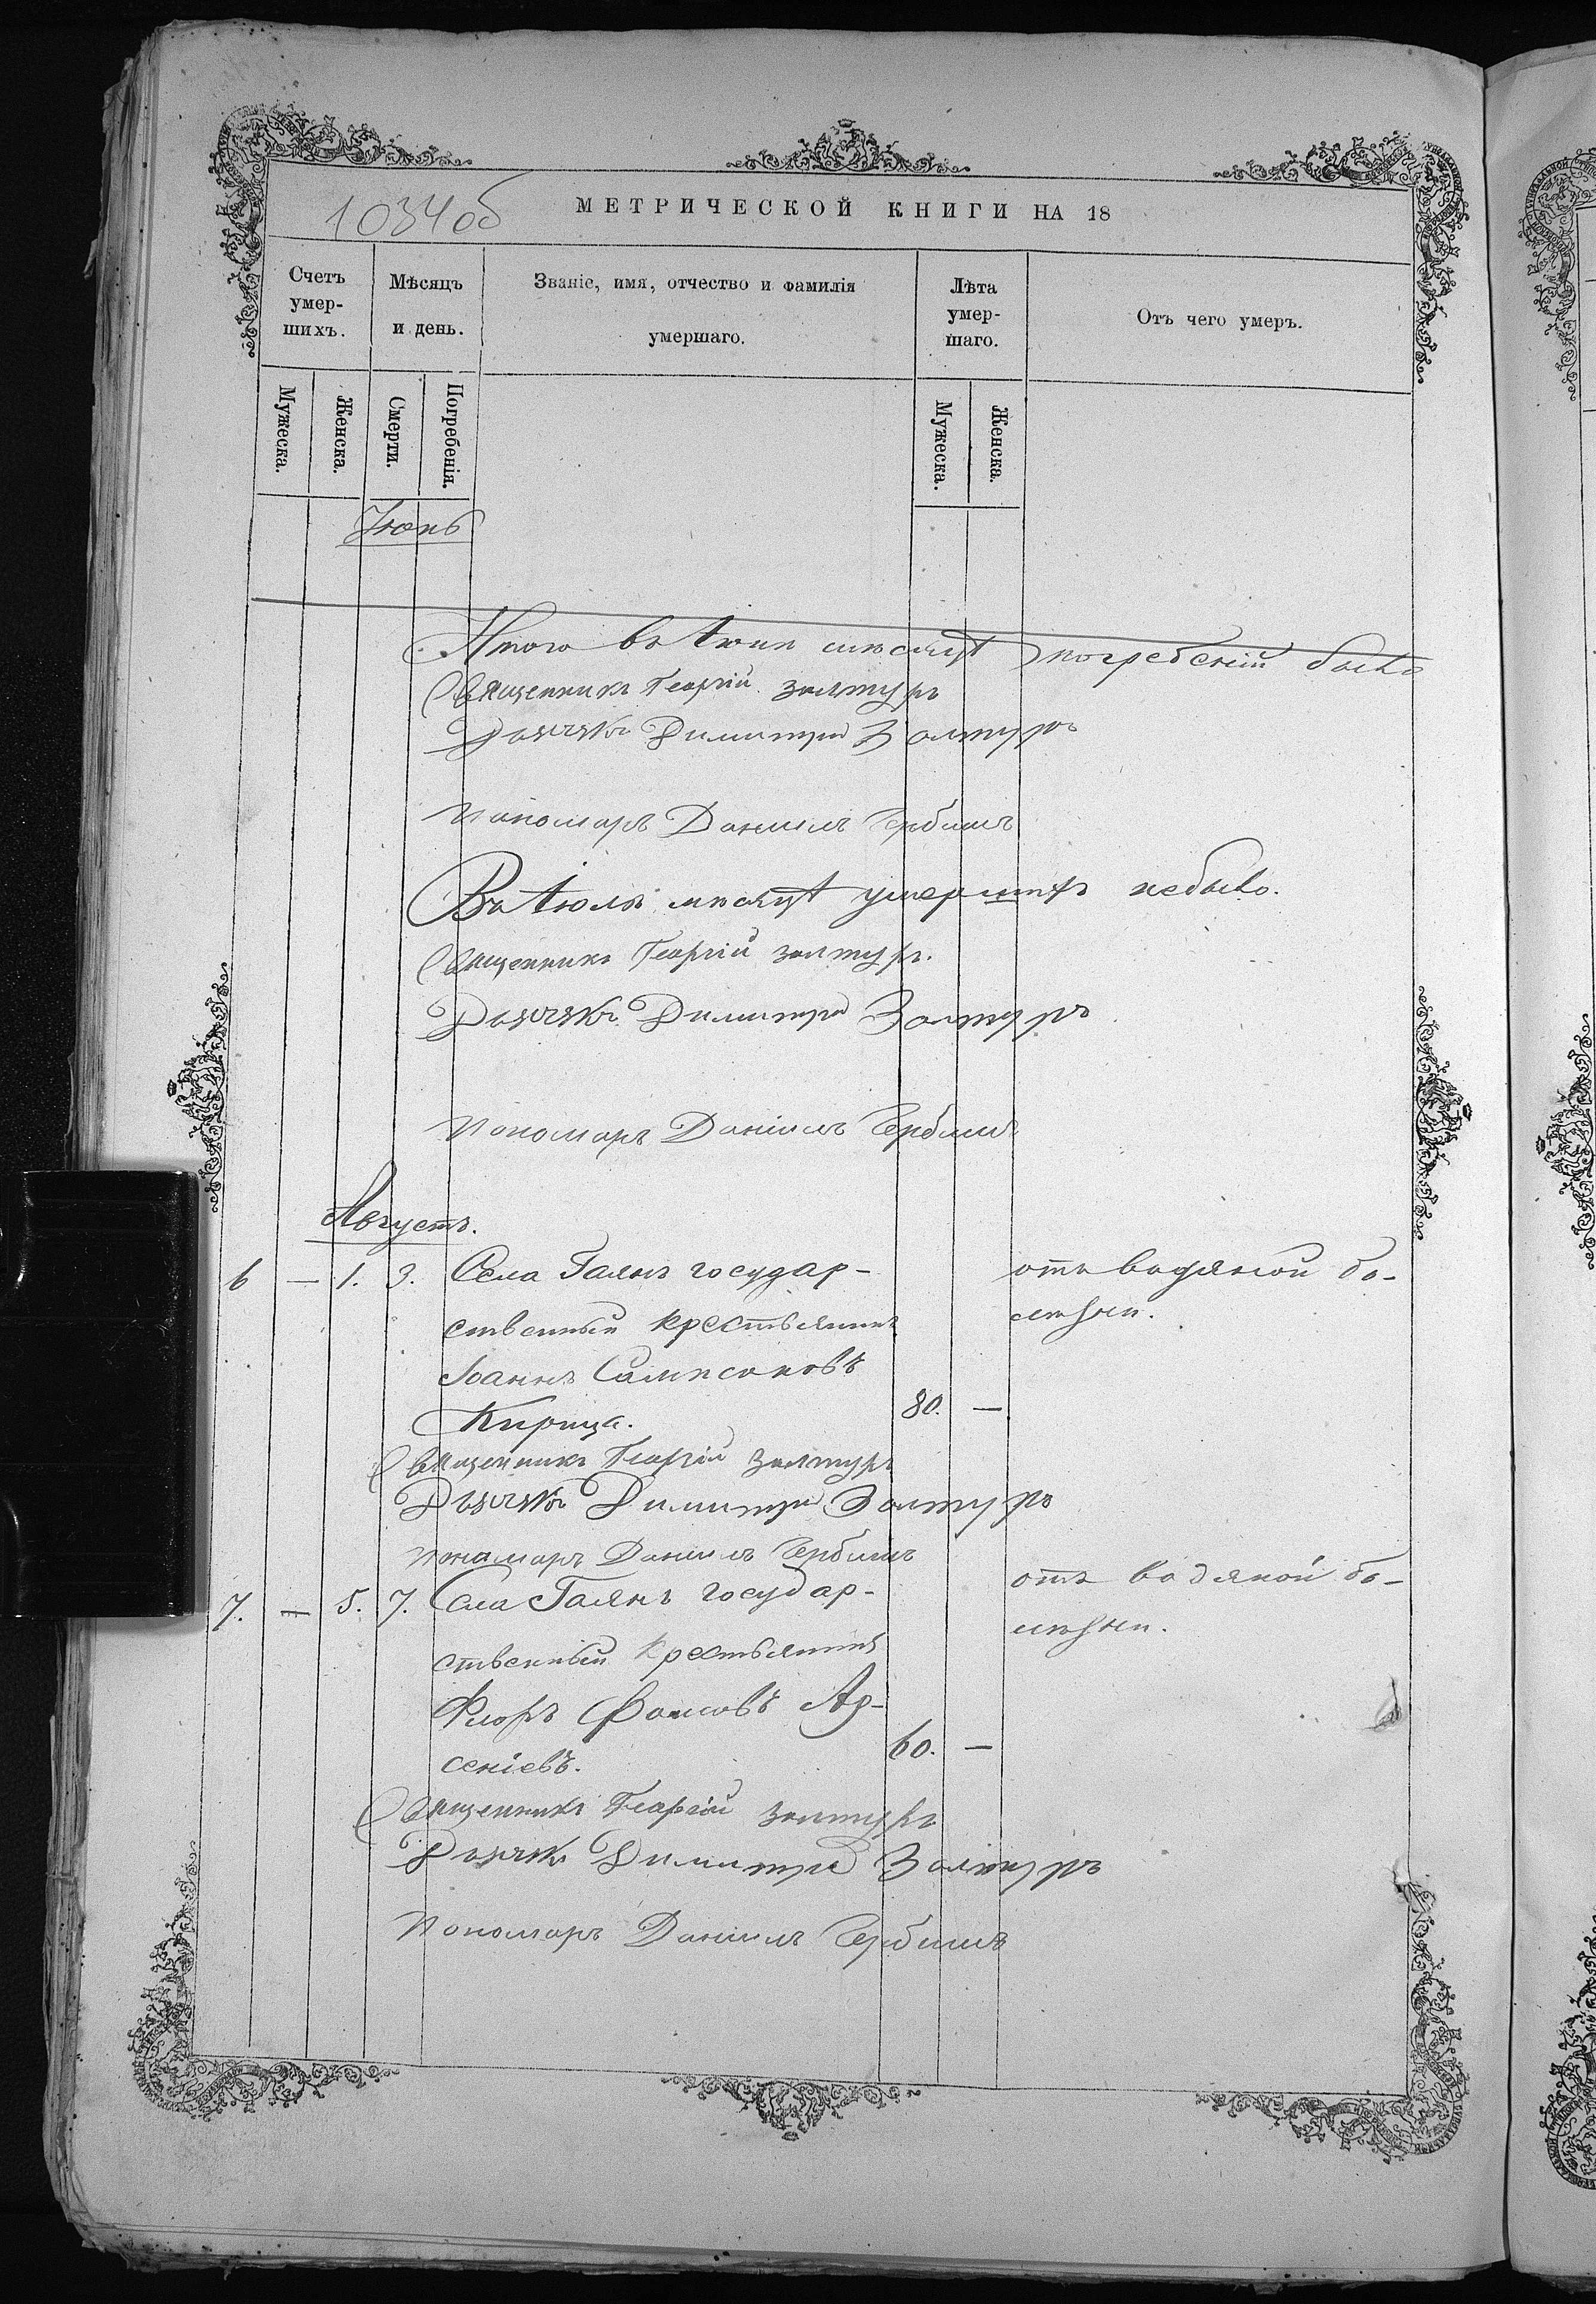 1034об
МЕТРИЧЕСКОЙ КНИГИ НА 18
Счетъ умер-шихъ.
Мѣсяцъ и день.
Званіе, имя, отчество и фамилія умершаго.
Лѣта умер-шаго.
Отъ чего умеръ.
Мужеска.
Женска.
Смерти.
Погребенія.
Мужеска.
Женска.
Іюнь
Итого въ Іюнѣ мѣсяцѣ погребеній было
Священникъ Георгій Залтуръ
Дьячекъ Димитрій Золтуръ
Пономаръ Даніилъ
Въ Іюлѣ мѣсяцѣ умершихъ небыло.
Священникъ Георгій Залтуръ.
Дьячекъ Димитрій Золтуръ
Пономаръ Даніилъ
Августъ.
6 — 1. 3. Села Гаянъ государ- отъ водяной бо-
ственный крестьянинъ лѣзни.
Іоаннъ Сампсоновъ
Кирица. 80. —
Священникъ Георгій Залтуръ
Дьячекъ Димитрій Золтуръ
Пономаръ Даніилъ
7. — 5. 7. Села Гаянъ государ- отъ водяной бо-
ственный крестьянинъ лѣзни.
Флоръ Фомовъ Ар-
сеніевъ. 60. —
Священникъ Георгій Залтуръ
Дьячекъ Димитрій Золтуръ
Пономаръ Даніилъ